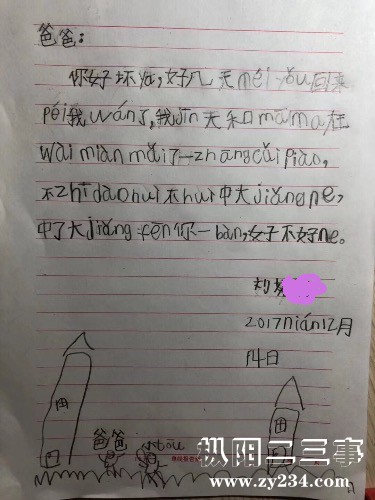 爸爸:
你好坏好坏,好几天méi yǒu回来
péi我wán了,我jīn天和māma在
wài miàn mǎi了一zhāng cǎi piào,
不zhī dào huì不huì中大jiǎng ne,
中了大jiǎng fēn你一bàn,好不好ne。
2017nián12月
14日
爸爸
枞阳二三事
www.zy234.com